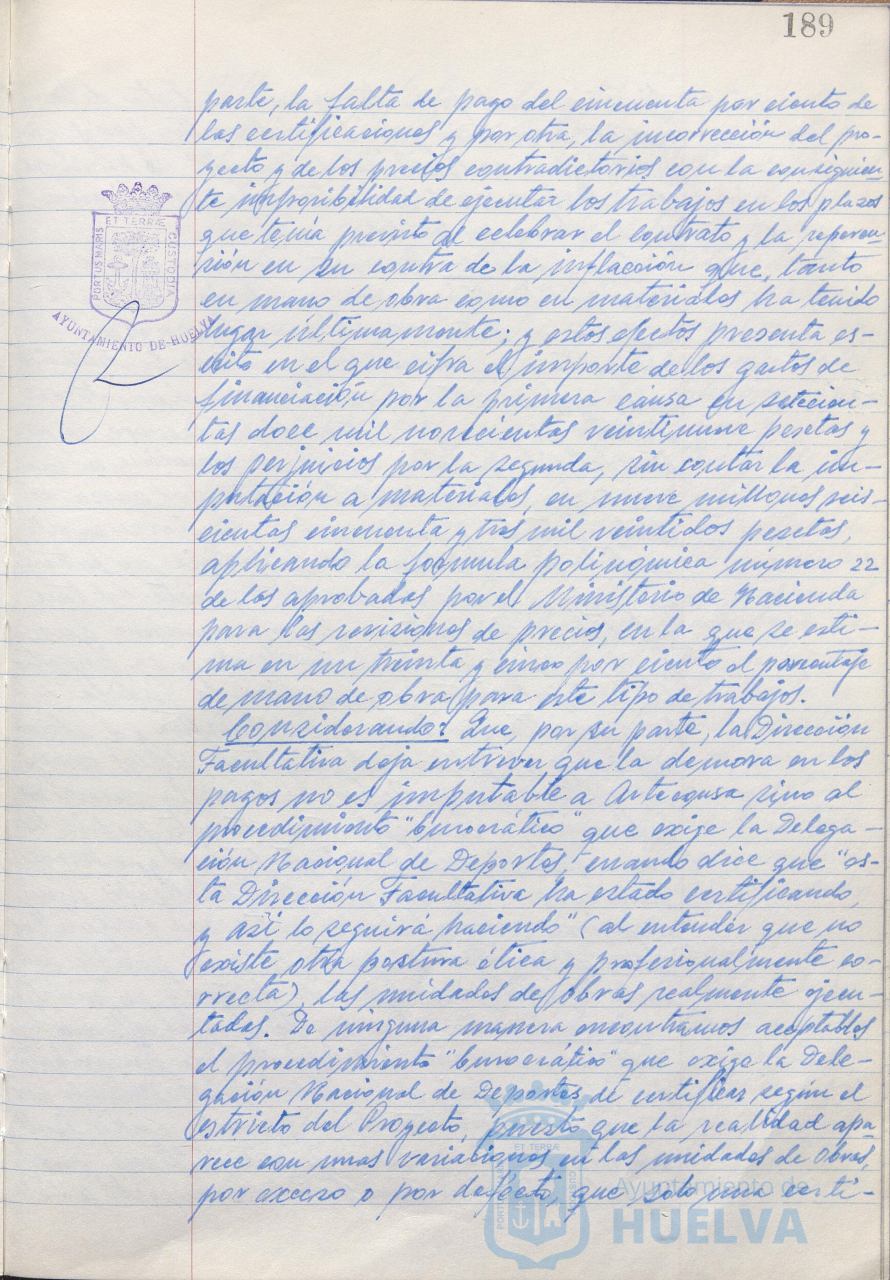 189
parte, la falta de pago del cincuenta por ciento de
las certificaciones y por otra, la incorrección del pro-
yecto y de los precios contradictorios con la consiguien-
te imposibilidad de ejecutar los trabajos en los plazos
que tenía previsto al celebrar el contrato y la repercu-
sión en su contra de la inflacción que, tanto
en mano de obra como en materiales ha tenido
lugar últimamente; y estos efectos presenta es-
crito en el que cifra el importe de los gastos de
financiación por la primera causa en setecien-
tas doce mil novecientas veintinueve pesetas y
los perjuicios por la segunda, sin contar la im-
putación a materiales, en nueve millones seis-
cientas cincuenta y tres mil veintidos pesetas,
aplicando la formula polinómica número 22
de las aprobadas por el Ministerio de Hacienda
para las revisiones de precios, en la que se esti-
ma en un treinta y cinco por ciento el porcentaje
de mano de obra para este tipo de trabajos.
Considerando: Que, por su parte, la Dirección
Facultativa deja entrever que la demora en los
pagos no es imputable a Artecqusa sino al
procedimiento "burocrático" que exige la Delega-
ción Nacional de Deportes, cuando dice que "es-
ta Dirección Facultativa ha estado certificando,
y así lo seguirá haciendo" (al entender que no
existe otra postura ética y profesionalmente co-
rrecta), las unidades de obras realmente ejecu-
tadas. De ninguna manera encontramos aceptables
el procedimiento "burocrático" que exige la Dele-
gación Nacional de Deportes de certificar según el
estricto del Proyecto, puesto que la realidad apa-
rece con unas variaciones en las unidades de obras,
por exceso o por defecto, que solo una certi-
PORTUS MARIS ET TERRÆ CUSTODIA
AYUNTAMIENTO DE HUELVA
Ayuntamiento de
HUELVA